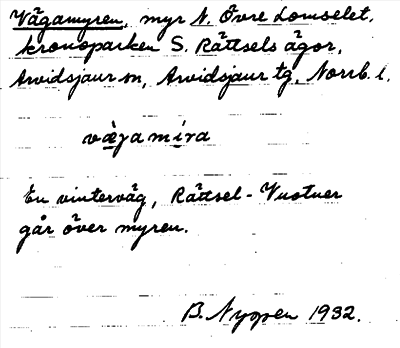 Vägamyren, myr N. Övre Lomselet,
kronoparken S. Rättsels ägor,
Arvidsjaur sn, Arvidsjaur tg, Norrb. l.
vægamira
En vinterväg, Rättsel - Vuotner
går över myren.
B. Nyopen 1932.